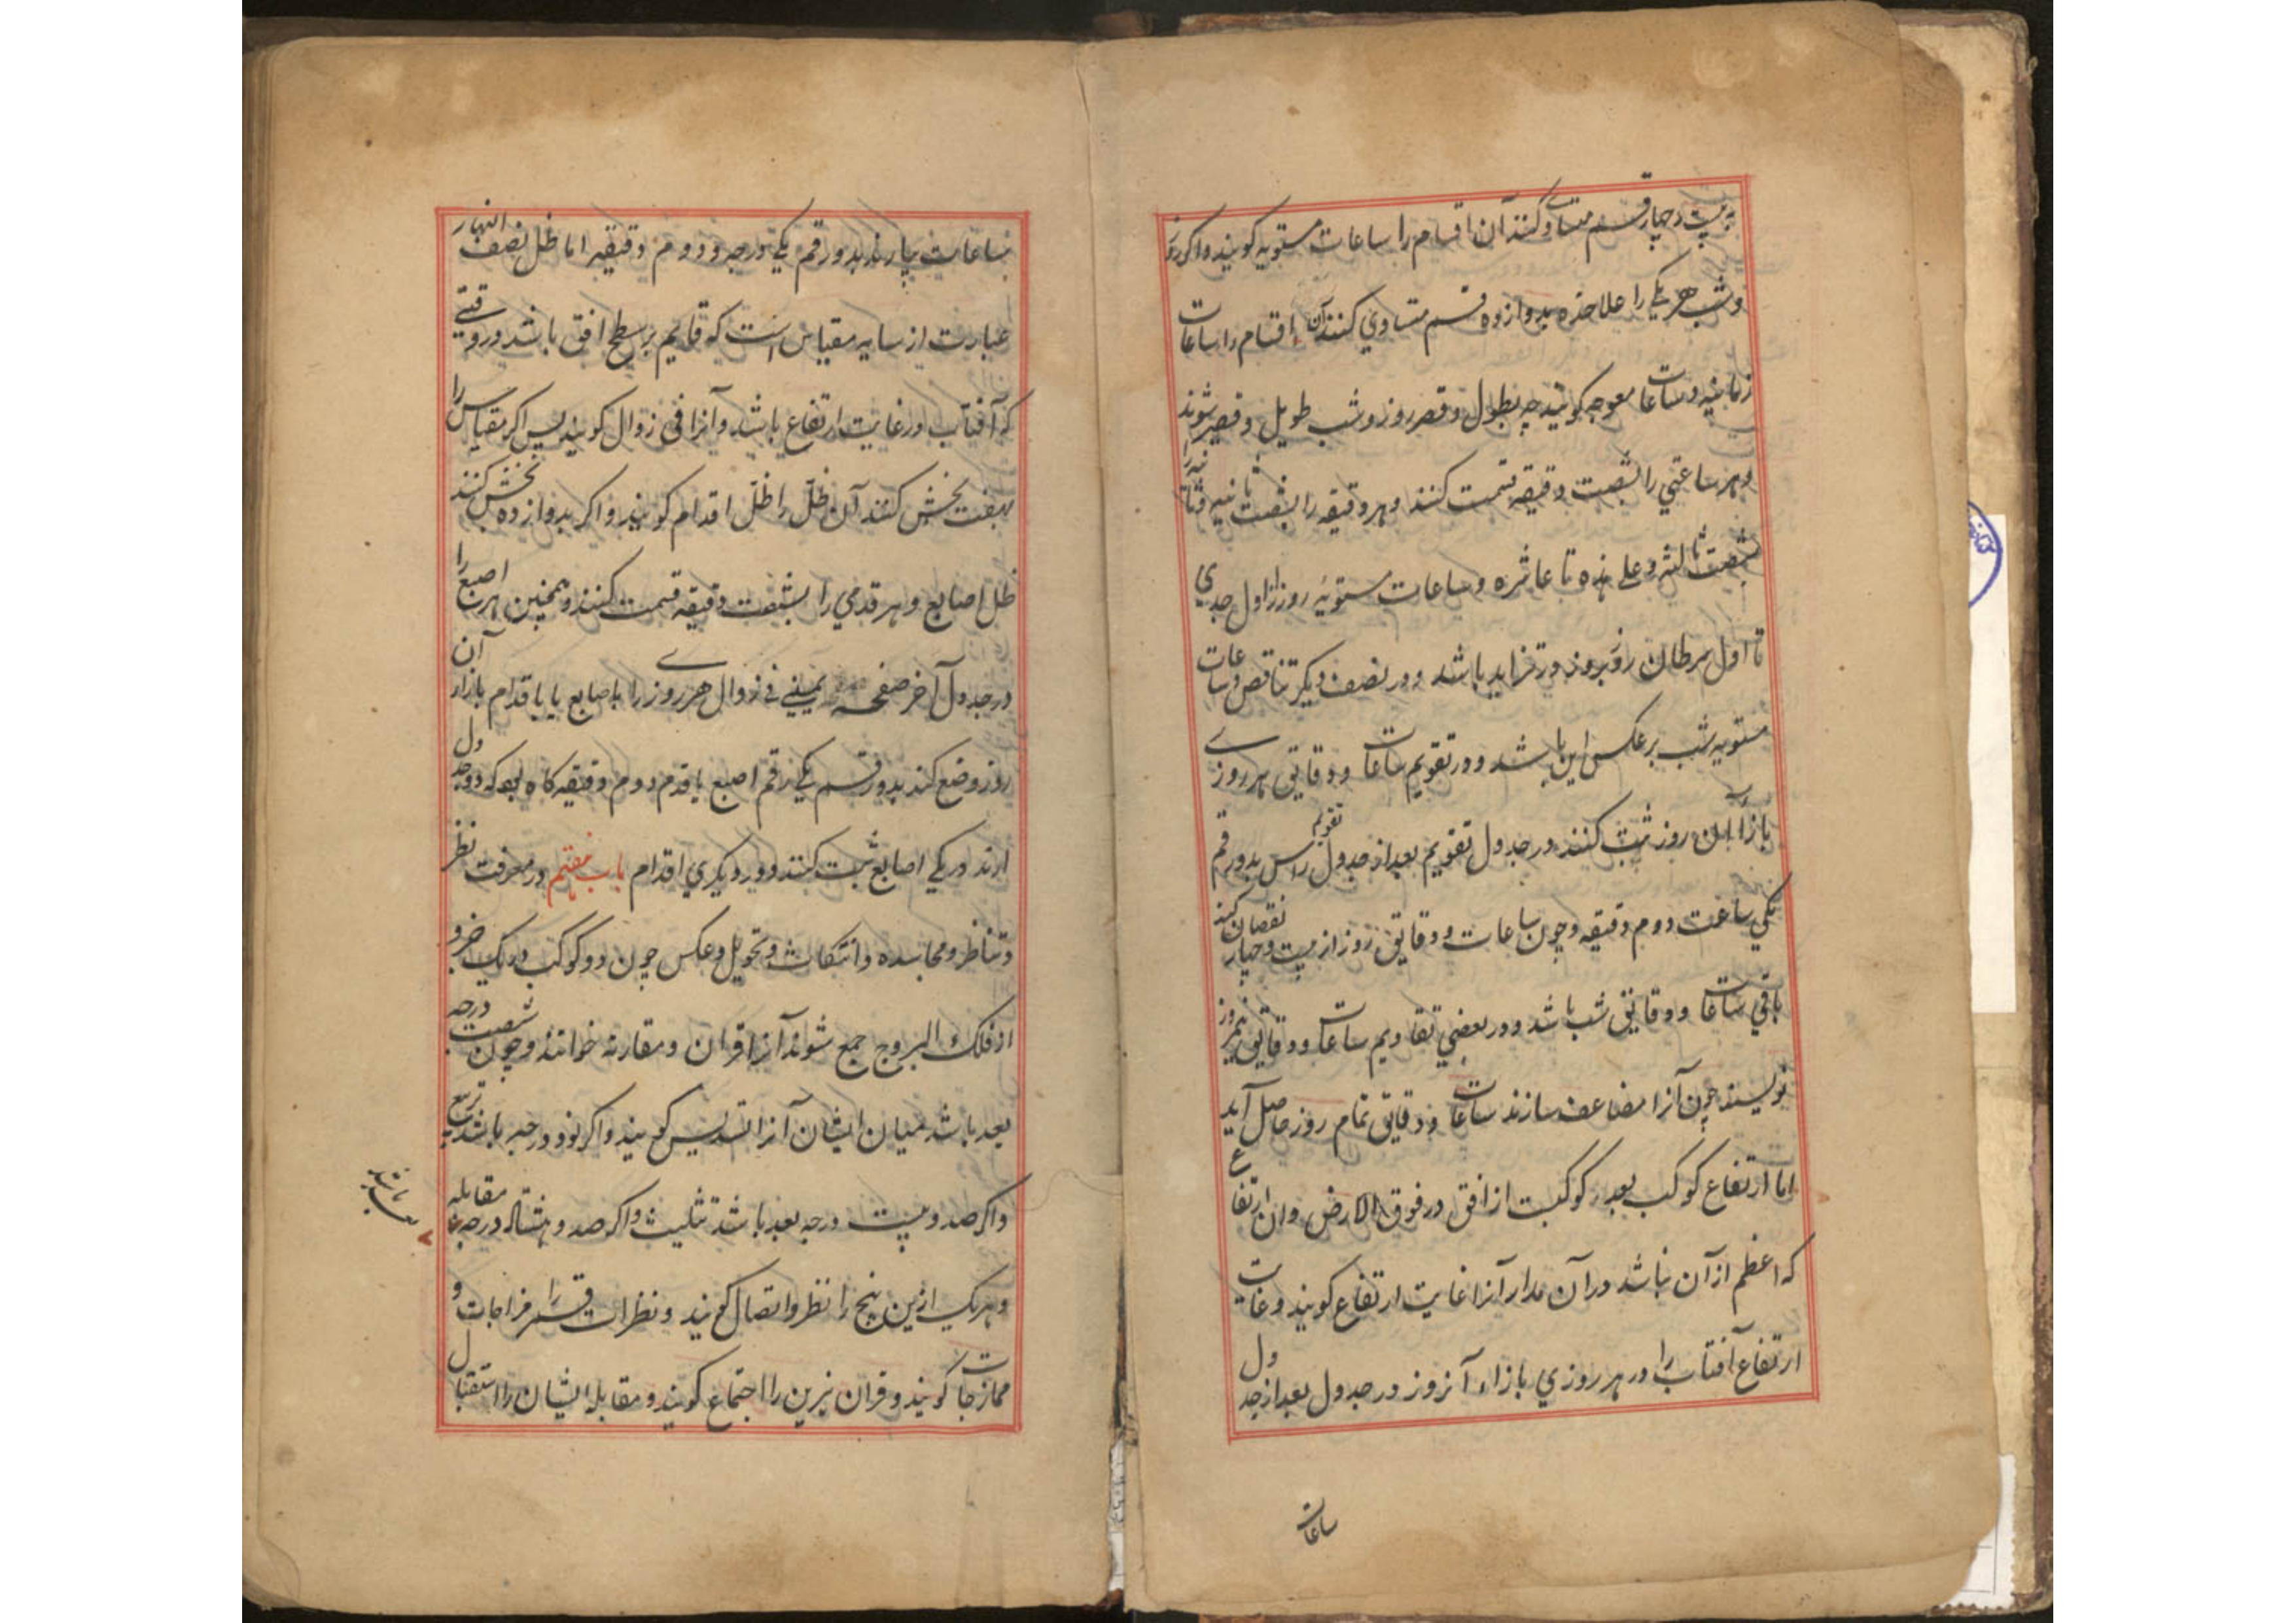 به بیست و چهار قسم متساوی کنند آن اقسام را ساعات مستویه کویند و اکر روز
و شب هر یکی را علاحده بدوازده قسم متساوی کنند آن اقسام را ساعات
زمانیه و ساعات معوجه کویند چه بطول و قصر روز و شب طویل و قصیر شوند
و هر ساعتی را بشصت دقیقه قسمت کنند و هر دقیقه را بشصت ثانیه و ثانیه را
بشصت ثالثه و علی هذه تا عاشره و ساعات مستویهٔ روز از اول جدی
تا اول سرطان روز بروز در تزاید باشد و در نصف دیکر تناقص و ساعات
مستویه شب بر عکس این باشد و در تقویم ساعات و دقایق هر روزے
بازآء آن روز ثبت کنند در جدول تقویم بعد از جدول تقویم راس بدو رقم
یکی ساعت دوم دقیقه و چون ساعات و دقایق روز از بیست و چهار نقصان کنند
باقی ساعات و دقایق شب باشد و در بعضی تقاویم ساعات و دقایق نیمروز
نویسند چون آنرا مضاعف سازند ساعات و دقایق تمام روز حاصل آید
اما ارتفاع کوکب بعد کوکبست از افق در فوق الارض و آن ارتفاع
که اعظم از آن نباشد در آن مدار آنرا غایت ارتفاع کویند و غایت
ارتفاع آفتاب را در هر روزی بازاء آنروز در جدول بعد از جدول
ساعات
بساعات بیارند بدو رقم یکی درجه و دوم دقیقه اما ظل نصف النهار
عبارت از سایه مقیاس است که قایم بر سطح افق باشد در وقتی
که آفتاب در غایت ارتفاع باشد و آنرا فی زوال کویند پس اکر مقیاس را
بهفت بخش کنند آن ظل را ظل اقدام کویند و اکر بدوازده بخش کنند
ظل اصابع و هر قدمی را بشصت دقیقه قسمت کنند و همچنین هر اصبع را
در جدول آخر صفحه یمینی فی زوال هر روزے را باصابع یا باقدام بازاء آن
روز وضع کنند بدو قسم یکی رقم اصبع یا قدم دوم دقیقه کاه بود که دو جدول
ارند در یکی اصابع ثبت کنند و در دیکری اقدام باب هفتم در معرفت نظر
و تناظر و محاسده و انتکاث و تحویل و عکس چون دو کوکب در یک جزو
از فلک البروج جمع شوند آنرا قران و مقارنه خوانند و چون شصت درجه
بعد باشد میان ایشان آنرا تسدیس کویند و اکر نود درجه باشد تربیع
و اکر صد و بیست درجه بعد باشد تثلیث و اکر صد و هشتاد درجه مقابله
و هر یک ازین پنج را نظر و اتصال کویند و نظرات قمر را مزاجات و
ممازجات کویند و قران نیرین را اجتماع کویند و مقابله ایشان را استقبال